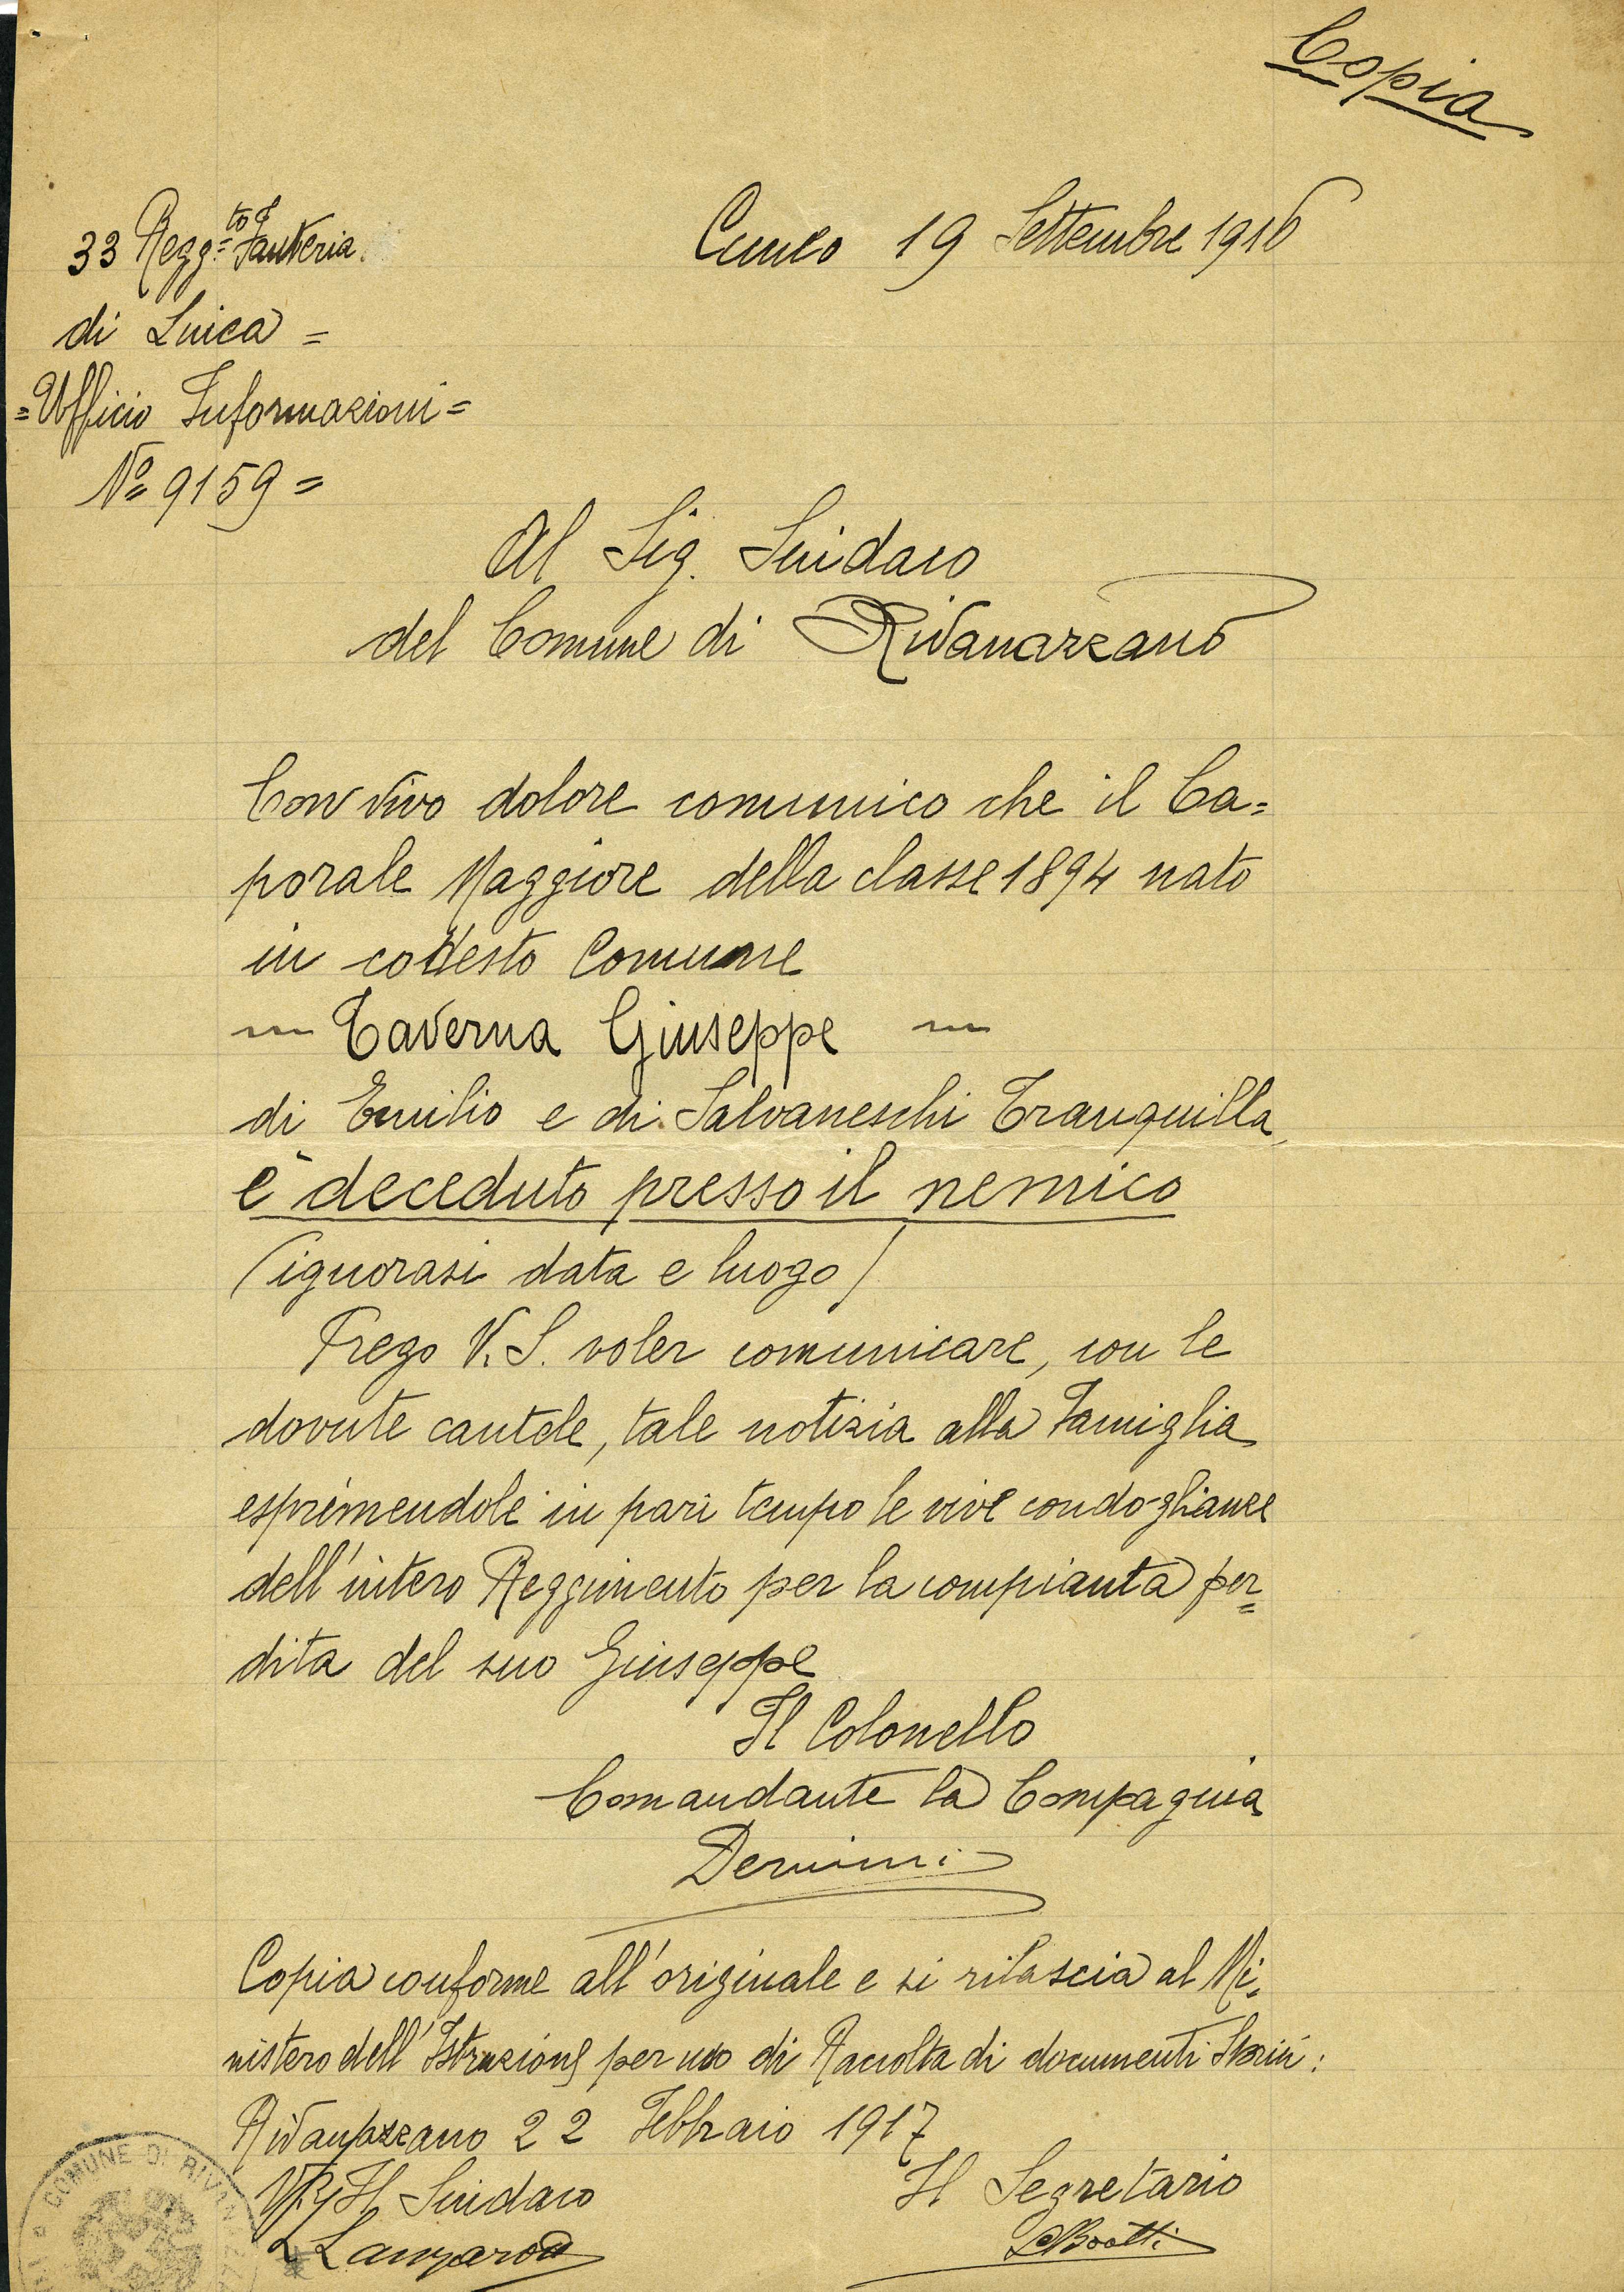 Copia
33 Regg.to Fanteria
Cuneo 19 Settembre 1916
di Linea =
= Ufficio Informazioni =
No 9159 =
Al Sig. Sindaco
del Comune di Rivanazzano
Con vivo dolore comunico che il Ca=
porale Maggiore della classe 1894 nato
in codesto Comune
Taverna Giuseppe
di Emilio e di Salvaneschi Tranquilla
è deceduto presso il nemico
(ignorasi data e luogo)
Prego V. S. voler comunicare, con le
dovute cautele, tale notizia alla Famiglia
esprimendole in pari tempo le vive condoglianze
dell'intero Reggimento per la compianta per=
dita del suo Giuseppe
Il Colonello
Comandante la Compagnia
Copia conforme all'originale e si rilascia al Mi=
nistero dell'Istruzione per uso di Raccolta di documenti Storici:
Rivanazzano 22 Febbraio 1917
Il Sindaco
Il Segretario
COMUNE DI RIVANAZZ